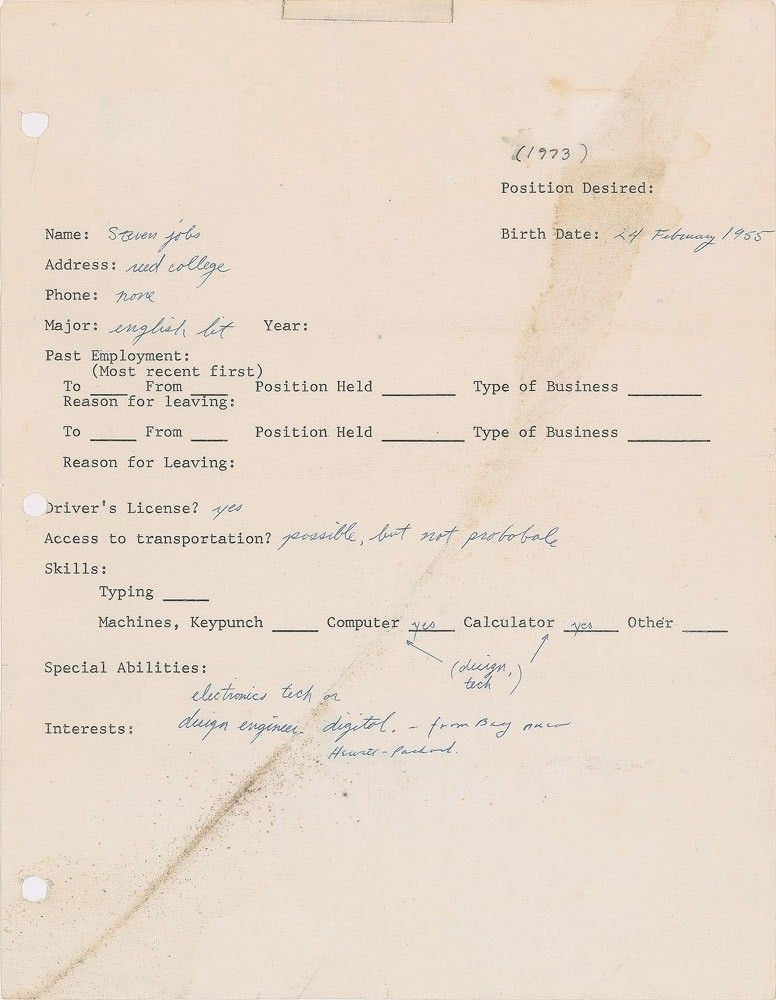 (1973)
Position Desired:
Name: Steven jobs
Birth Date: 24 February 1955
Address: reed college
Phone: none
Major: english lit Year:
Past Employment:
(Most recent first)
To ____ From ____ Position Held ________ Type of Business ________
Reason for leaving:
To ____ From ____ Position Held ________ Type of Business ________
Reason for Leaving:
Driver's License? yes
Access to transportation? possible, but not probobale
Skills:
Typing ____
Machines, Keypunch ____ Computer yes Calculator yes Other ____
(design,
tech)
Special Abilities:
electronics tech or
Interests: design engineer. digital. - from Bay near
Hewitt-Packard.